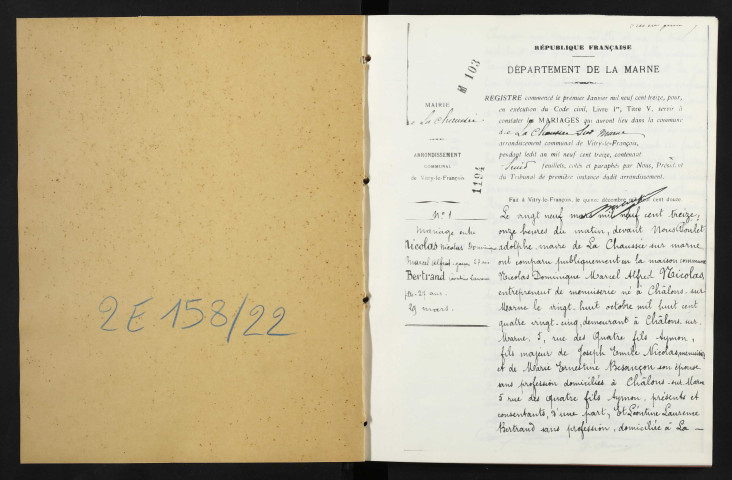 2 E 158/22
RÉPUBLIQUE FRANÇAISE
DÉPARTEMENT DE LA MARNE
M 103
1194
MAIRIE
La Chaussée
ARRONDISSEMENT
COMMUNAL
de Vitry-le-François
REGISTRE commencé le premier Janvier mil neuf cent treize, pour,
en exécution du Code civil, Livre Ier, Titre V, servir à
constater les MARIAGES qui auront lieu dans la commune
de La Chaussée sur Marne
arrondissement communal de Vitry-le-François,
pendant ledit an mil neuf cent treize, contenant
huit feuillets, cotés et paraphés par Nous, Président
du Tribunal de première instance dudit arrondissement.
Fait à Vitry-le-François, le quinze décembre mil neuf cent douze.
No 1
Mariage entre
Nicolas Nicolas Dominique
Marcel Alfred garçon 27 ans
Bertrand Léontine Laurence
fille 29 mars.
Le vingt neuf mars mil neuf cent treize,
onze heures du matin, devant Nous
adolphe maire de La Chaussée sur marne
ont comparu publiquement en la maison commune
Nicolas Dominique Marcel Alfred Nicolas,
entrepreneur de menuiserie né à Châlons-sur-
Marne le vingt-huit octobre mil huit cent
quatre vingt-cinq, demeurant à Châlons-sur-
Marne, 5, rue des Quatre fils Aymon,
fils majeur de Joseph Emile Nicolas, menuisier
et de Marie Ernestine Besançon son épouse
sans profession domiciliés à Châlons-sur-Marne
5 rue des quatre fils Aymon, présents et
consentants, d'une part, Et Léontine Laurence
Bertrand sans profession, domiciliée à La